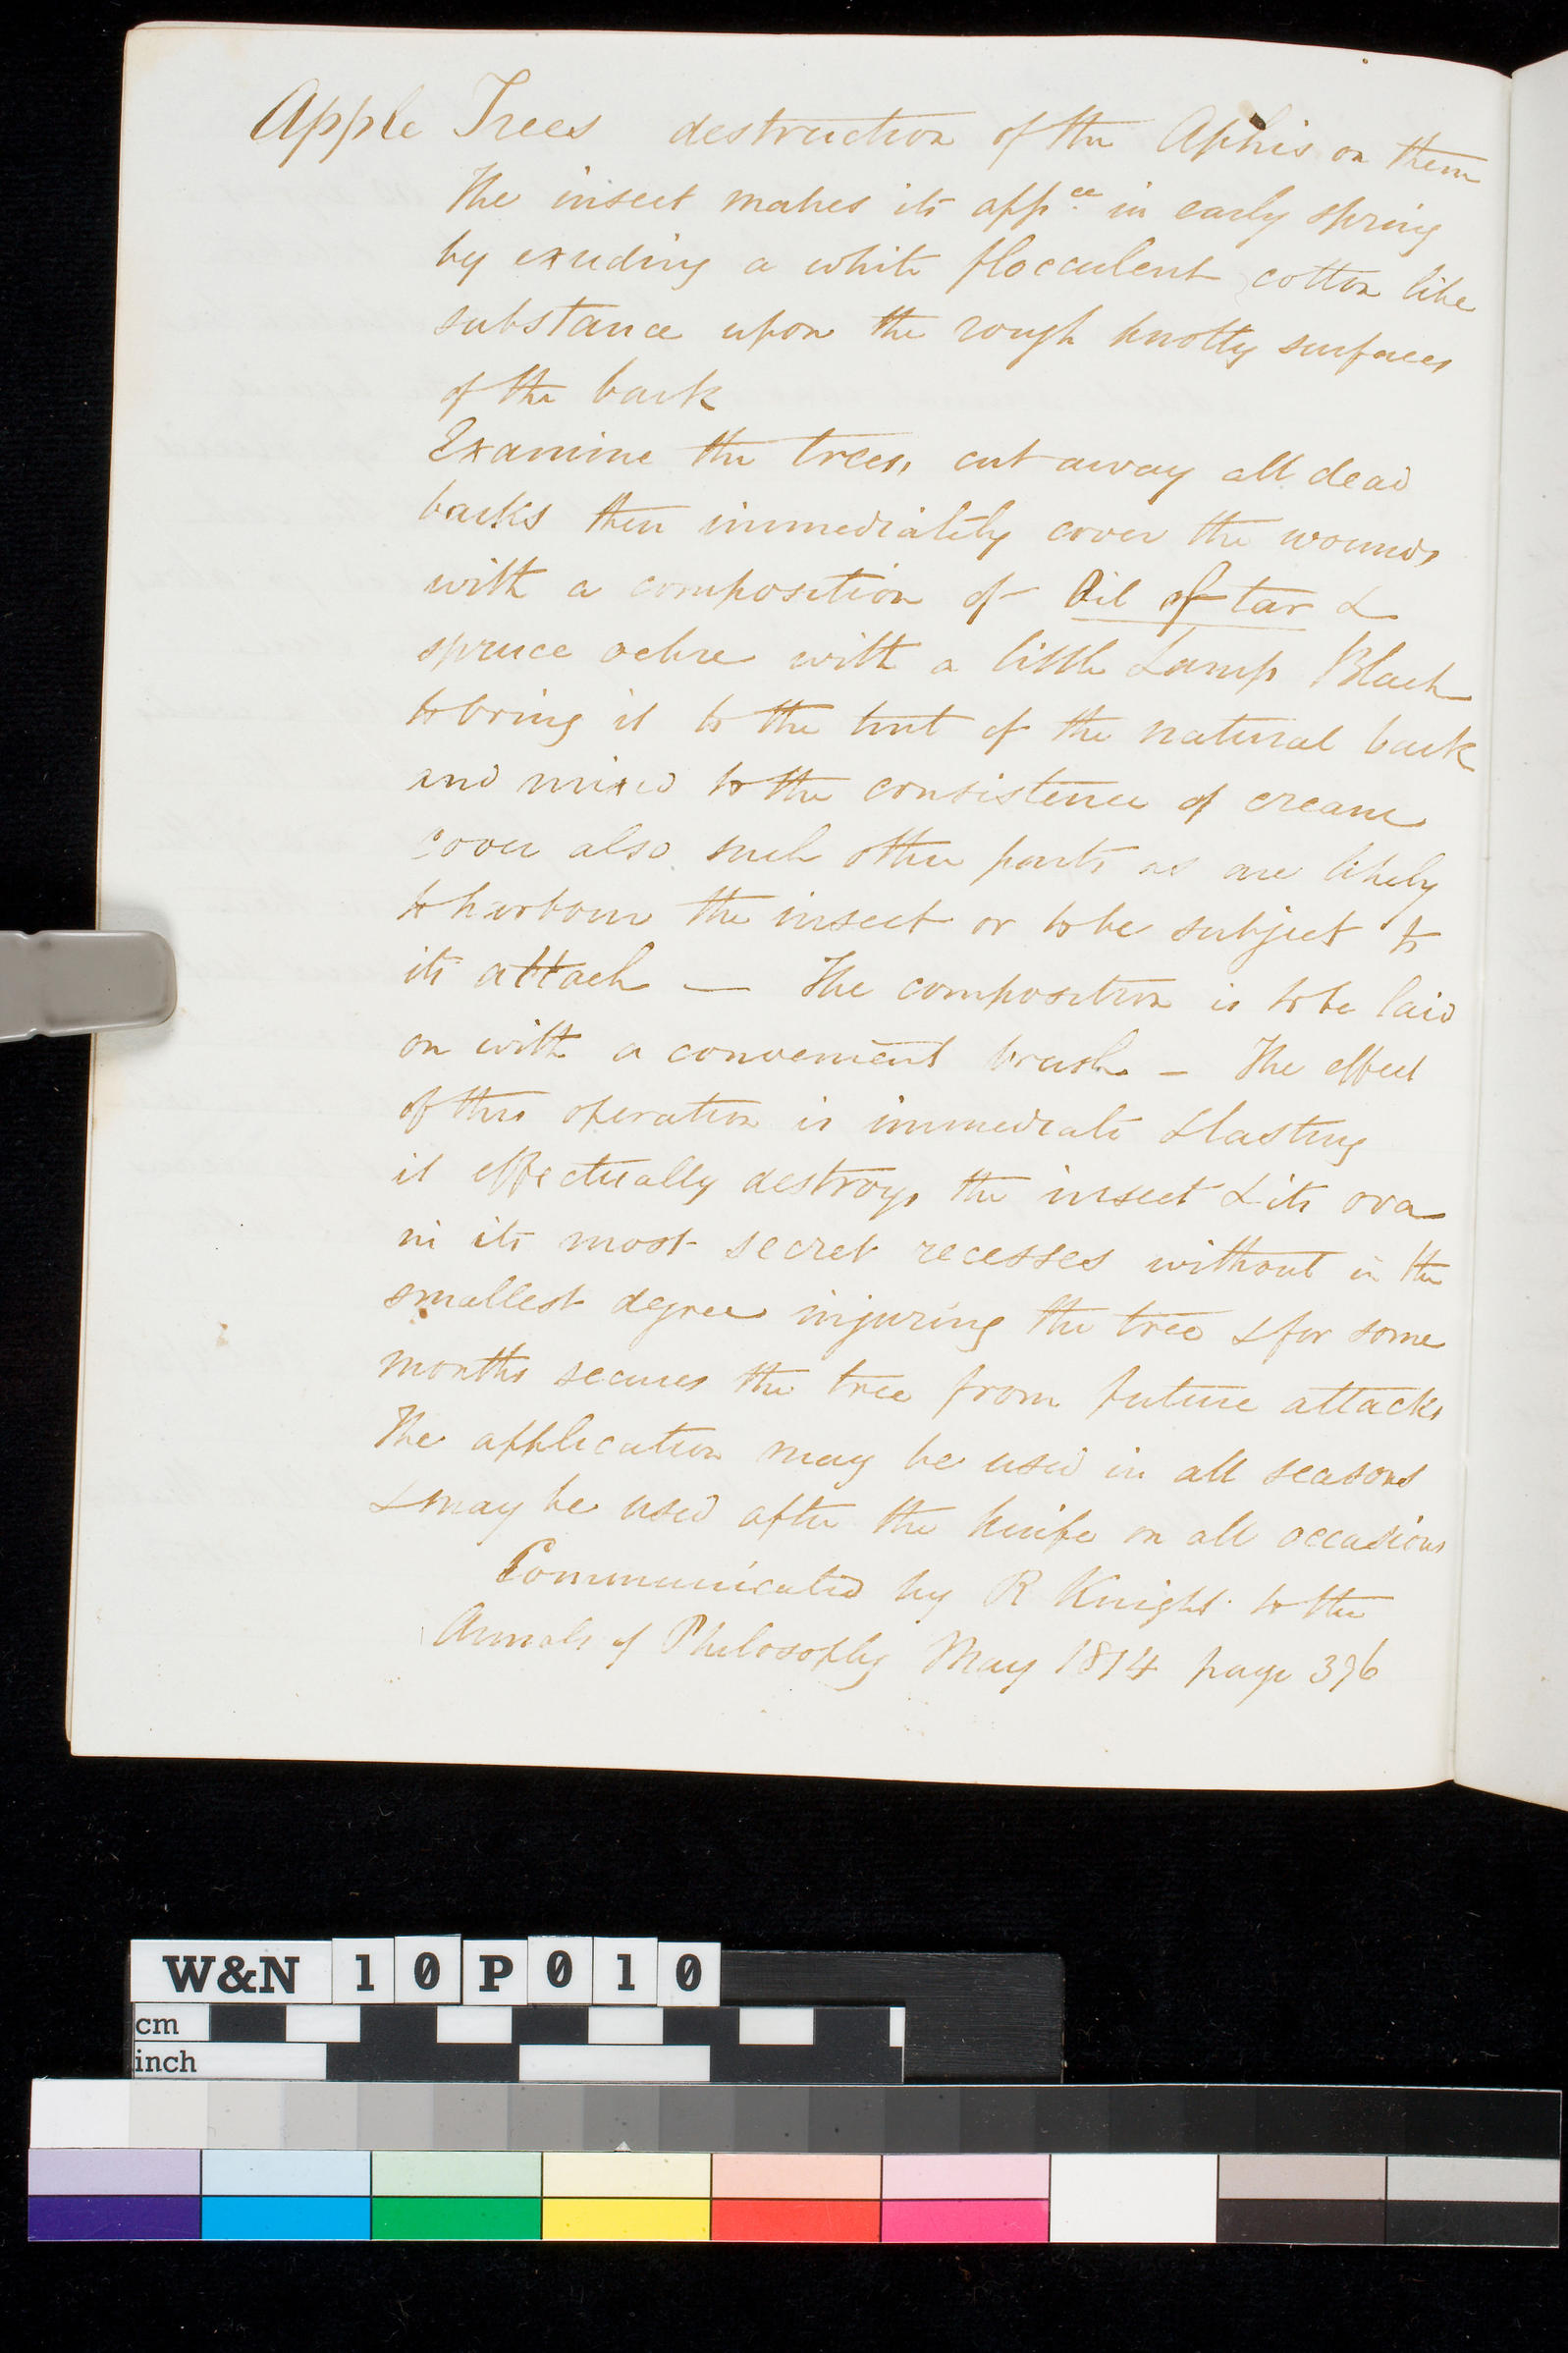 Apple Trees destruction of the Aphis on them
The insect makes its appce in early spring
by exuding a white flocculent cotton like
substance upon the rough knotty surfaces
of the bark
Examine the trees, cut away all dead
barks then immediately cover the wounds
with a composition of Oil of tar &
spruce ochre with a little Lamp Black
to bring it to the tint of the natural bark
and mixed to the consistence of cream
cover also such other parts as are likely
to harbour the insect or to be subject to
its attack — The composition is to be laid
on with a convenient brush — The effect
of this operation is immediate & lasting
it effectually destroys the insect & its ova
in its most secret recesses without in the
smallest degree injuring the tree & for some
months secures the tree from future attacks
The application may be used in all seasons
& may be used after the knife on all occasions
Communicated by R Knight to the
Annals of Philosophy May 1814 page 396
W&N 10P010
cm
inch